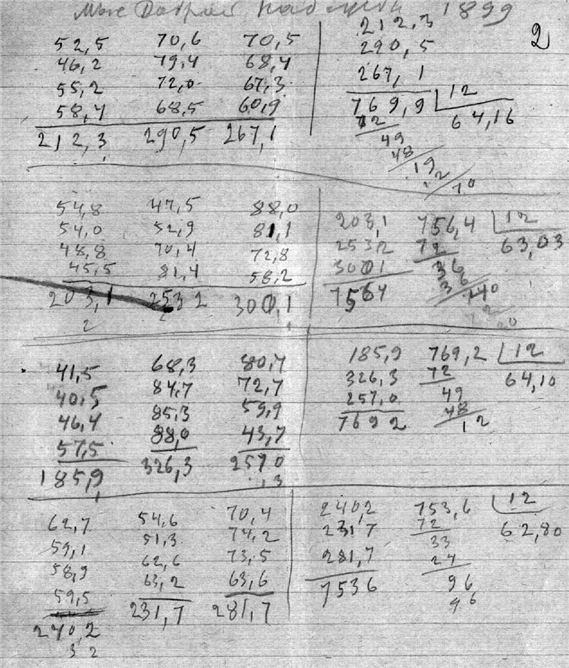 1899
2
52,5 70,6 70,5
46,2 79,4 68,4
55,2 72,0 67,3
58,4 68,5 60,9
212,3 290,5 267,1
212,3
290,5
267,1
769,9 12
72 64,16
49
48
19
12
70
54,8 47,5 88,0
54,0 52,9 81,1
48,8 70,4 72,8
45,5 81,4 58,2
203,1 253 2 300,1
2 2
203,1 756,4 12
253,2 72 63,03
300,1 36
7564 36
40
41,5 68,3 80,7
40,5 84,7 72,7
46,4 85,3 59,9
57,5 88,0 43,7
185,9 326,3 257 0
185,9 769,2 12
326,3 72 64,10
257,0 49
7692 48
12
62,7 54,6 70,4
59,1 51,3 74,2
58,9 62,6 73,5
59,5 63,2 63,6
240,2 231,7 281,7
3 2
240,2 753,6 12
231,7 72 62,80
281,7 33
7536 24
96
96